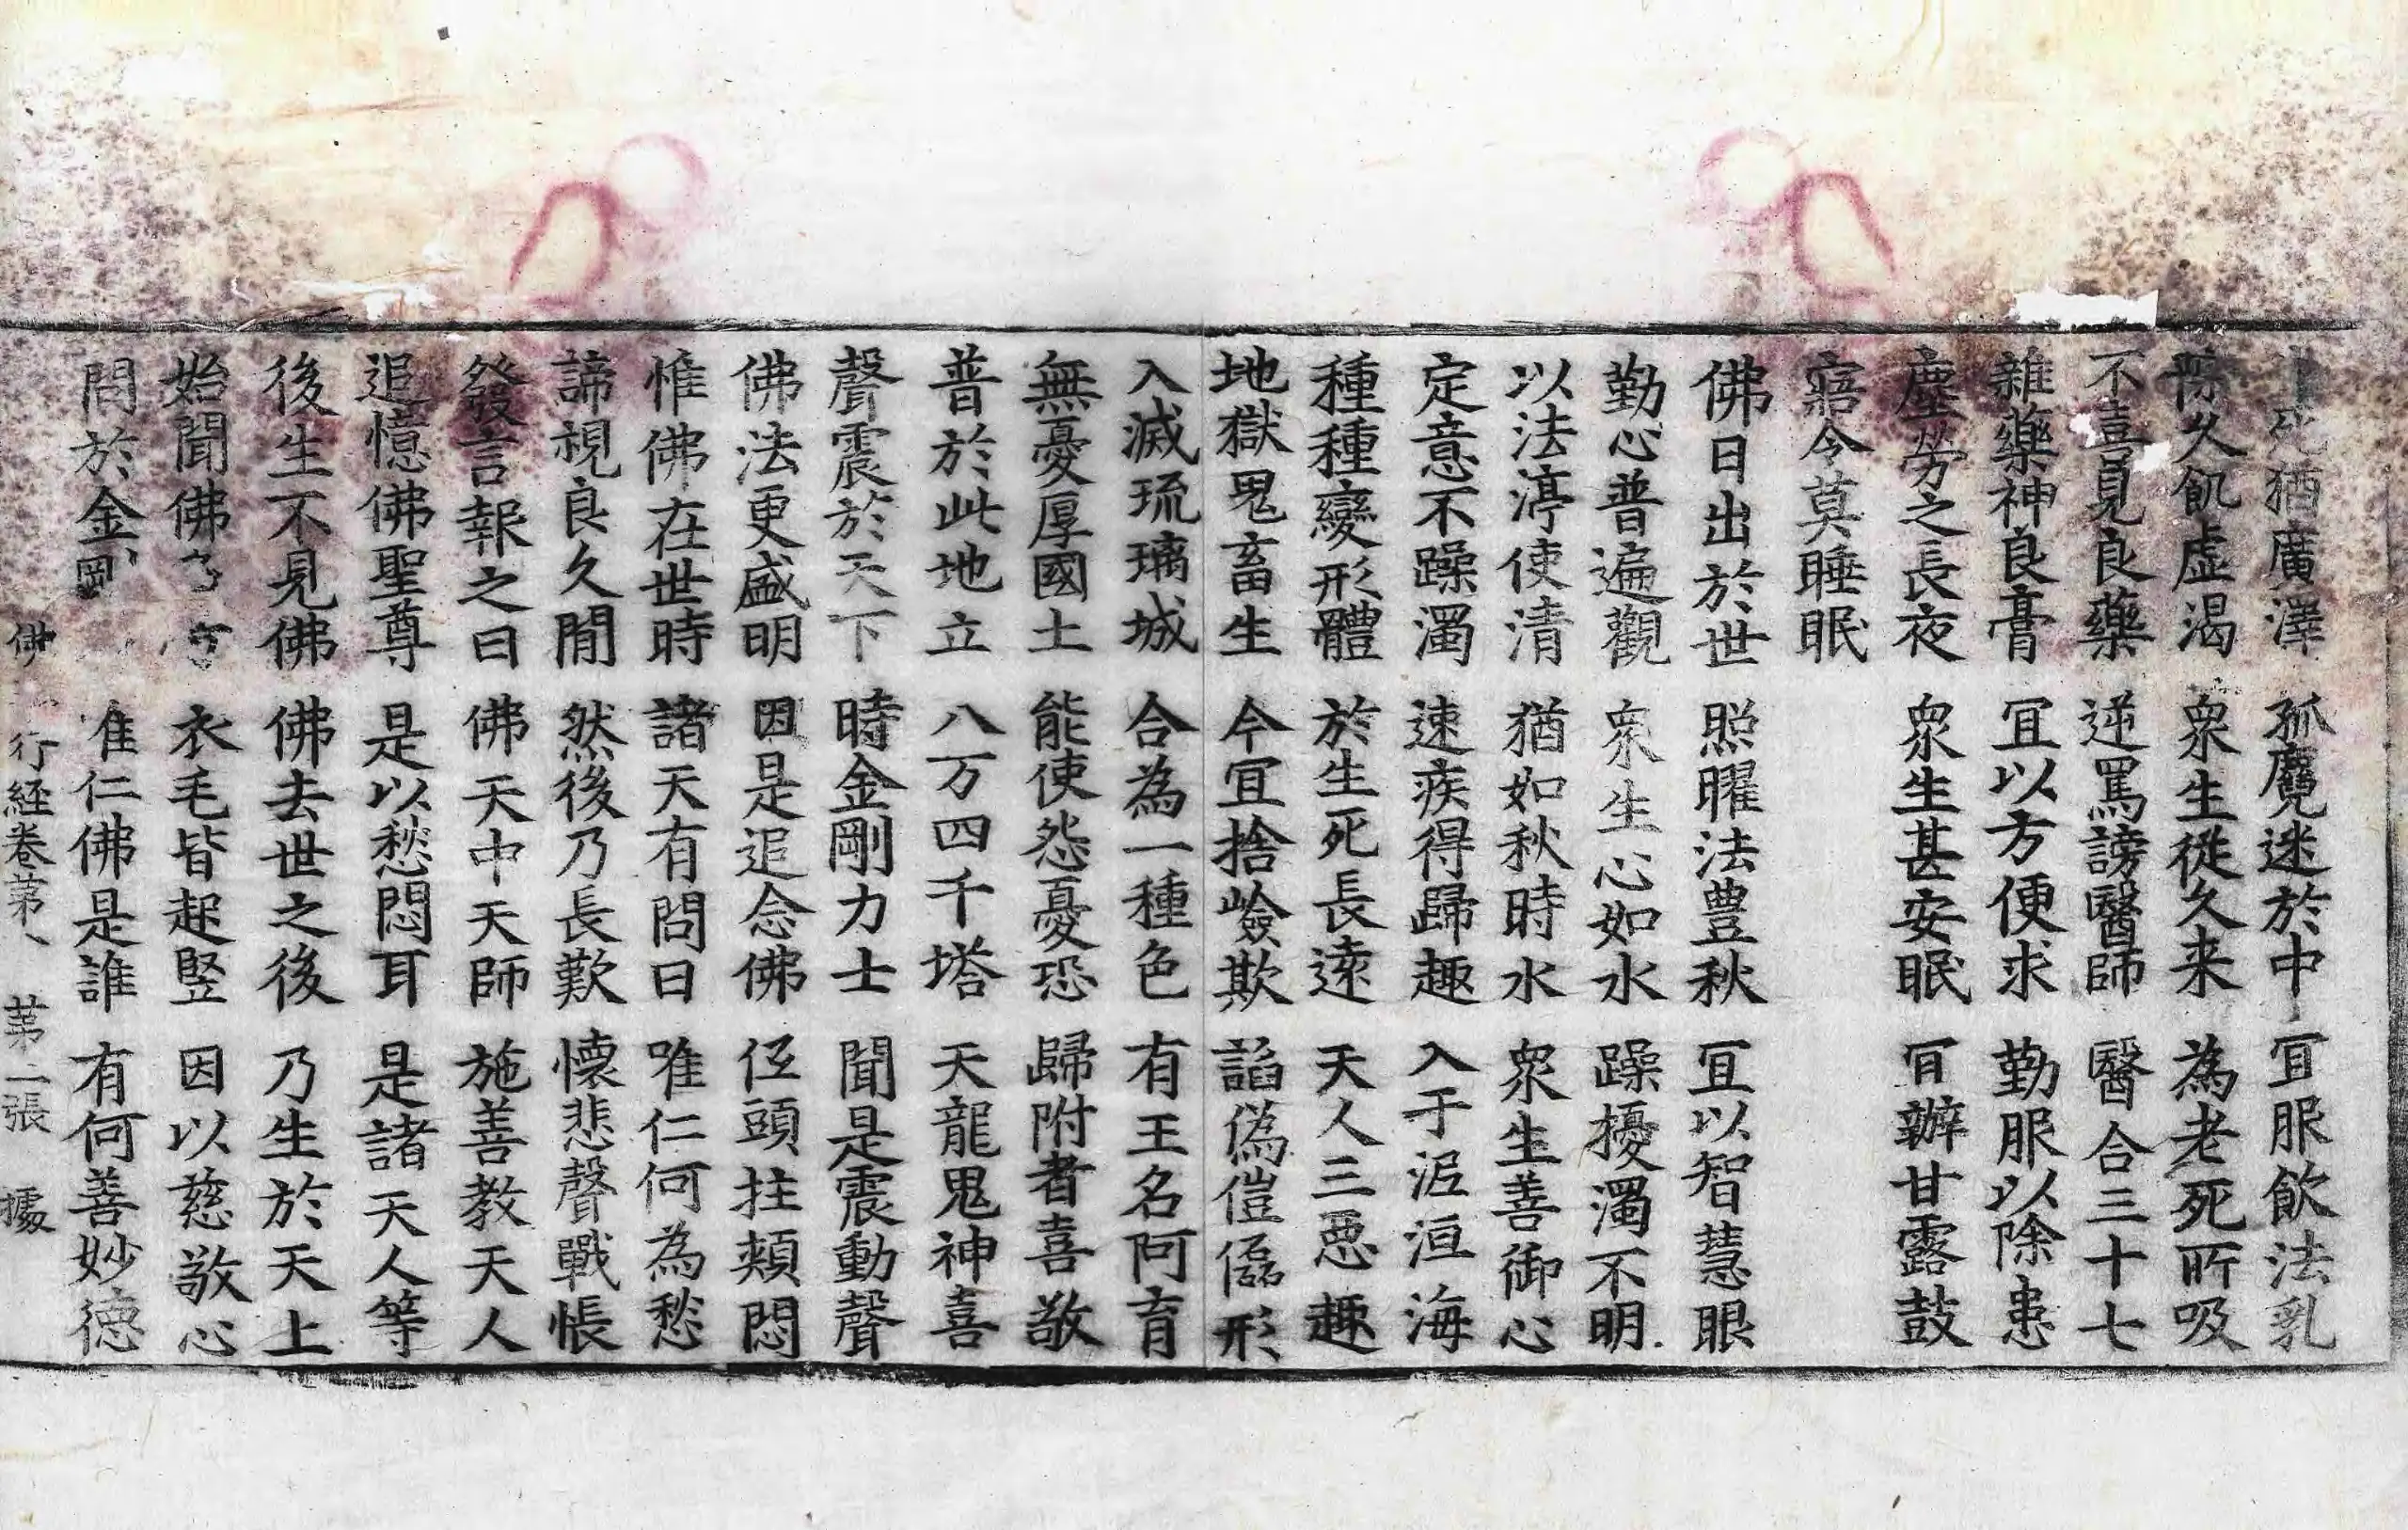 死猶廣澤 孤魔迷於中 宜服飲法乳
久飢虛渴 衆生從久来 為老死所吸
不喜見良藥 逆罵謗醫師 醫合三十七
雜藥神良膏 宜以方便求 勤服以除患
塵勞之長夜 衆生甚安眠 宜辦甘露鼓
寤令莫睡眠
佛日出於世 照曜法豊秋 宜以智慧眼
勤心普遍觀 衆生心如水 躁擾濁不明
以法渟使清 猶如秋時水 衆生善御心
定意不躁濁 速疾得歸趣 入于泥洹海
種種變形體 於生死長遠 天人三惡趣
地獄鬼畜生 今宜捨嶮欺 諂偽傀儡形
入滅琉璃城 合為一種色 有王名阿育
無憂厚國土 能使怨憂恐 歸附者喜敬
普於此地立 八万四千塔 天龍鬼神喜
聲震於天下 時金剛力士 聞是震動聲
佛法更盛明 因是追念佛 低頭拄頰悶
惟佛在世時 諸天有問曰 唯仁何為愁
諦視良久閒 然後乃長歎 懷悲聲戰悵
發言報之曰 佛天中天師 施善教天人
追憶佛聖尊 是以愁悶耳 是諸天人等
後生不見佛 佛去世之後 乃生於天上
始聞佛 衣毛皆起竪 因以慈敬心
問於金剛 唯仁佛是誰 有何善妙德
佛 行經卷第 第二張 據